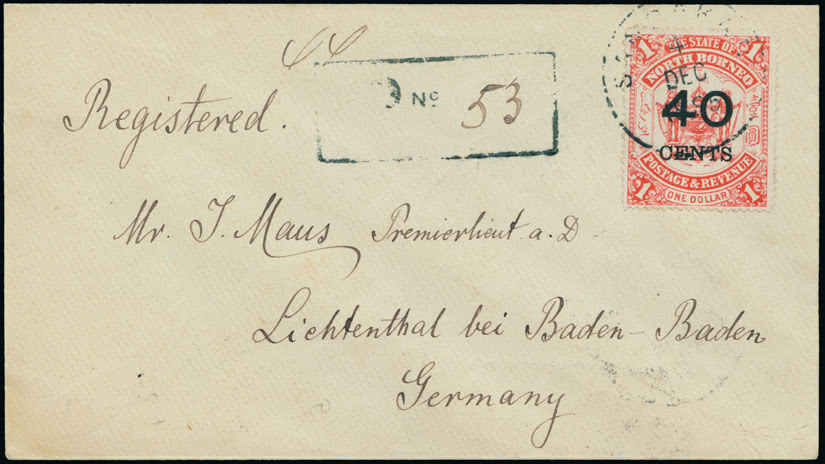 Registered.
No 53
4
DEC
1 THE STATE OF 1
NORTH BORNEO
40
CENTS
POSTAGE & REVENUE
1 ONE DOLLAR 1
Mr. J. Maus Premierlieut. a. D.
Lichtenthal bei Baden-Baden
Germany